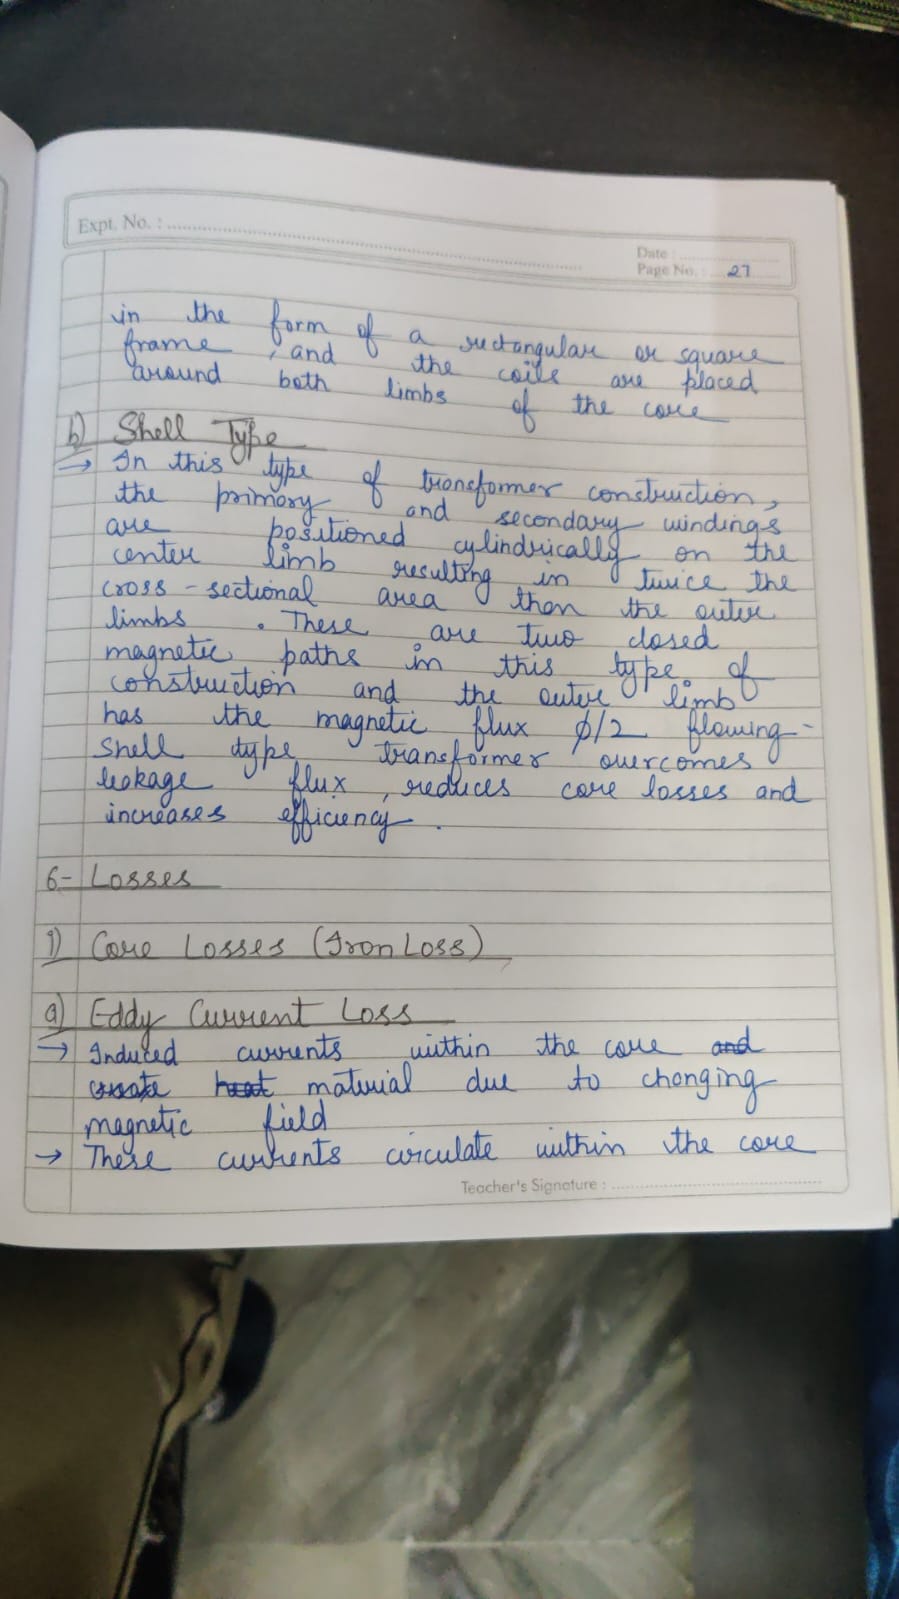 Expt. No. :
Date :
Page No. : 27
in the form of a rectangular or square
frame, and the coils are placed
around both limbs of the core
b) Shell Type
→ In this type of transformer construction,
the primary and secondary windings
are positioned cylindrically on the
center limb resulting in twice the
cross-sectional area than the outer
limbs. These are two closed
magnetic paths in this type of
construction and the outer limb
has the magnetic flux ϕ/2 flowing-
Shell type transformer overcomes
leakage flux, reduces core losses and
increases efficiency.
6- Losses
1) Core Losses (Iron Loss)
a) Eddy Current Loss
→ Induced currents within the core and
create heat material due to changing
magnetic field
→ These currents circulate within the core
Teacher's Signature :